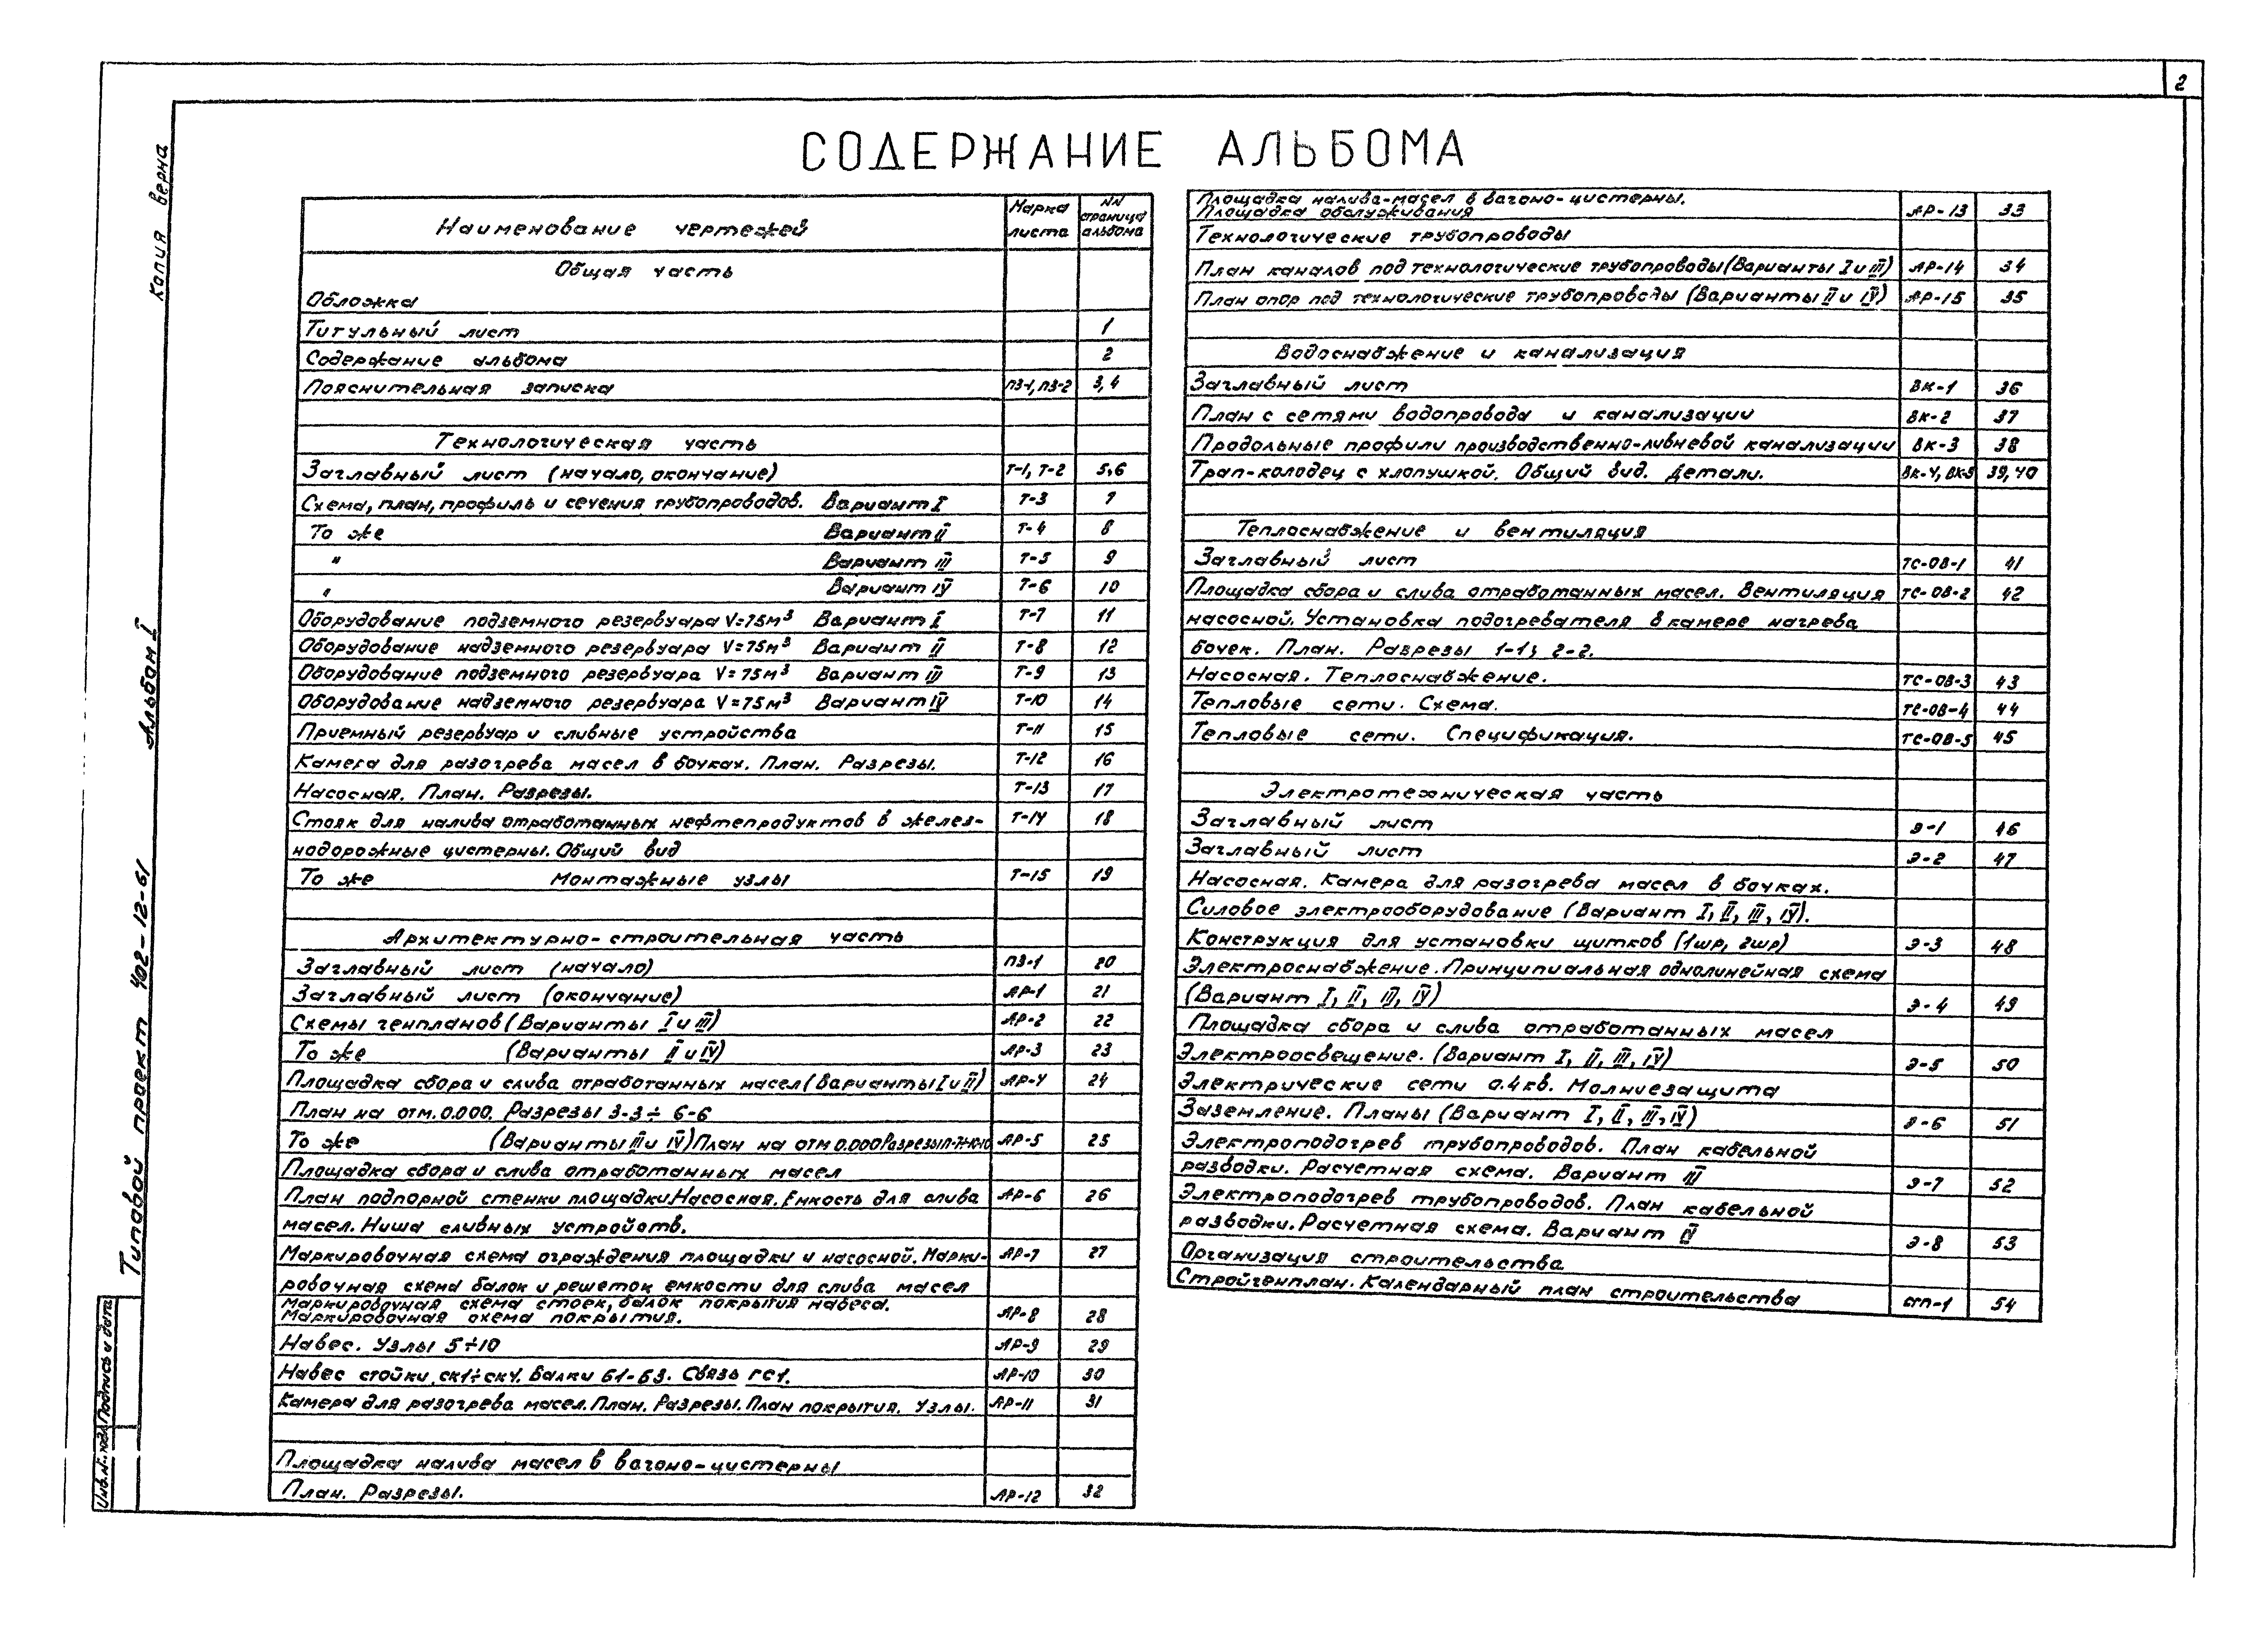 2
СОДЕРЖАНИЕ АЛЬБОМА
Копия верна
Альбом I
Типовой проект 402-12-61
Подпись и дата
Инв.N
Наименование чертежей Марка листа NN страница альбома
Общая часть
Обложка
Титульный лист 1
Содержание альбома 2
Пояснительная записка ПЗ-1, ПЗ-2 3,4
Технологическая часть
Заглавный лист (начало, окончание) Т-1, Т-2 5,6
Схема, план, профиль и сечения трубопроводов. Вариант I Т-3 7
То же Вариант II Т-4 8
" Вариант III Т-5 9
" Вариант IV Т-6 10
Оборудование подземного резервуара V=75м³ Вариант I Т-7 11
Оборудование надземного резервуара V=75м³ Вариант II Т-8 12
Оборудование подземного резервуара V=75м³ Вариант III Т-9 13
Оборудование надземного резервуара V=75м³ Вариант IV Т-10 14
Приемный резервуар и сливные устройства Т-11 15
Камера для разогрева масел в бочках. План. Разрезы. Т-12 16
Насосная. План. Разрезы. Т-13 17
Стояк для налива отработанных нефтепродуктов в желез- Т-14 18
нодорожные цистерны. Общий вид
То же Монтажные узлы Т-15 19
Архитектурно-строительная часть
Заглавный лист (начало) ПЗ-1 20
Заглавный лист (окончание) АР-1 21
Схемы генпланов (Варианты I и III) АР-2 22
То же (Варианты II и IV) АР-3 23
Площадка сбора и слива отработанных масел (Варианты I и II) АР-4 24
План на отм. 0.000. Разрезы 3-3÷6-6
То же (Варианты III и IV) План на отм 0.000 Разрезы АР-5 25
Площадка сбора и слива отработанных масел
План подпорной стенки площадки. Насосная. Емкость для слива АР-6 26
масел. Ниша сливных устройств.
Маркировочная схема ограждения площадки и насосной. Марки- АР-7 27
ровочная схема балок и решеток емкости для слива масел
Маркировочная схема стоек, балок покрытия навеса.
Маркировочная схема покрытия. АР-8 28
Навес. Узлы 5÷10 АР-9 29
Навес стойки СК1÷СК4. Балки Б1-Б3. Связь ГС1. АР-10 30
Камера для разогрева масел. План. Разрезы. План покрытия. Узлы. АР-11 31
Площадка налива масел в вагоно-цистерны
План. Разрезы. АР-12 32
Площадка налива-масел в вагоно-цистерны.
Площадка обслуживания АР-13 33
Технологические трубопроводы
План каналов под технологические трубопроводы (Варианты I и III) АР-14 34
План опор под технологические трубопроводы (Варианты II и IV) АР-15 35
Водоснабжение и канализация
Заглавный лист ВК-1 36
План с сетями водопровода и канализации ВК-2 37
Продольные профили производственно-ливневой канализации ВК-3 38
Трап-колодец с хлопушкой. Общий вид. Детали. ВК-4, ВК-5 39,40
Теплоснабжение и вентиляция
Заглавный лист ТС-ОВ-1 41
Площадка сбора и слива отработанных масел. Вентиляция ТС-ОВ-2 42
насосной. Установка подогревателя в камере нагрева
бочек. План. Разрезы 1-1; 2-2.
Насосная. Теплоснабжение. ТС-ОВ-3 43
Тепловые сети. Схема. ТС-ОВ-4 44
Тепловые сети. Спецификация. ТС-ОВ-5 45
Электротехническая часть
Заглавный лист Э-1 46
Заглавный лист Э-2 47
Насосная. Камера для разогрева масел в бочках.
Силовое электрооборудование (Вариант I, II, III, IV).
Конструкция для установки щитков (1шр, 2шр) Э-3 48
Электроснабжение. Принципиальная однолинейная схема
(Вариант I, II, III, IV) Э-4 49
Площадка сбора и слива отработанных масел
Электроосвещение. (Вариант I, II, III, IV) Э-5 50
Электрические сети 0.4кв. Молниезащита
Заземление. Планы (Вариант I, II, III, IV) Э-6 51
Электроподогрев трубопроводов. План кабельной
разводки. Расчетная схема. Вариант III Э-7 52
Электроподогрев трубопроводов. План кабельной
разводки. Расчетная схема. Вариант IV Э-8 53
Организация строительства
Стройгенплан. Календарный план строительства СГП-1 54